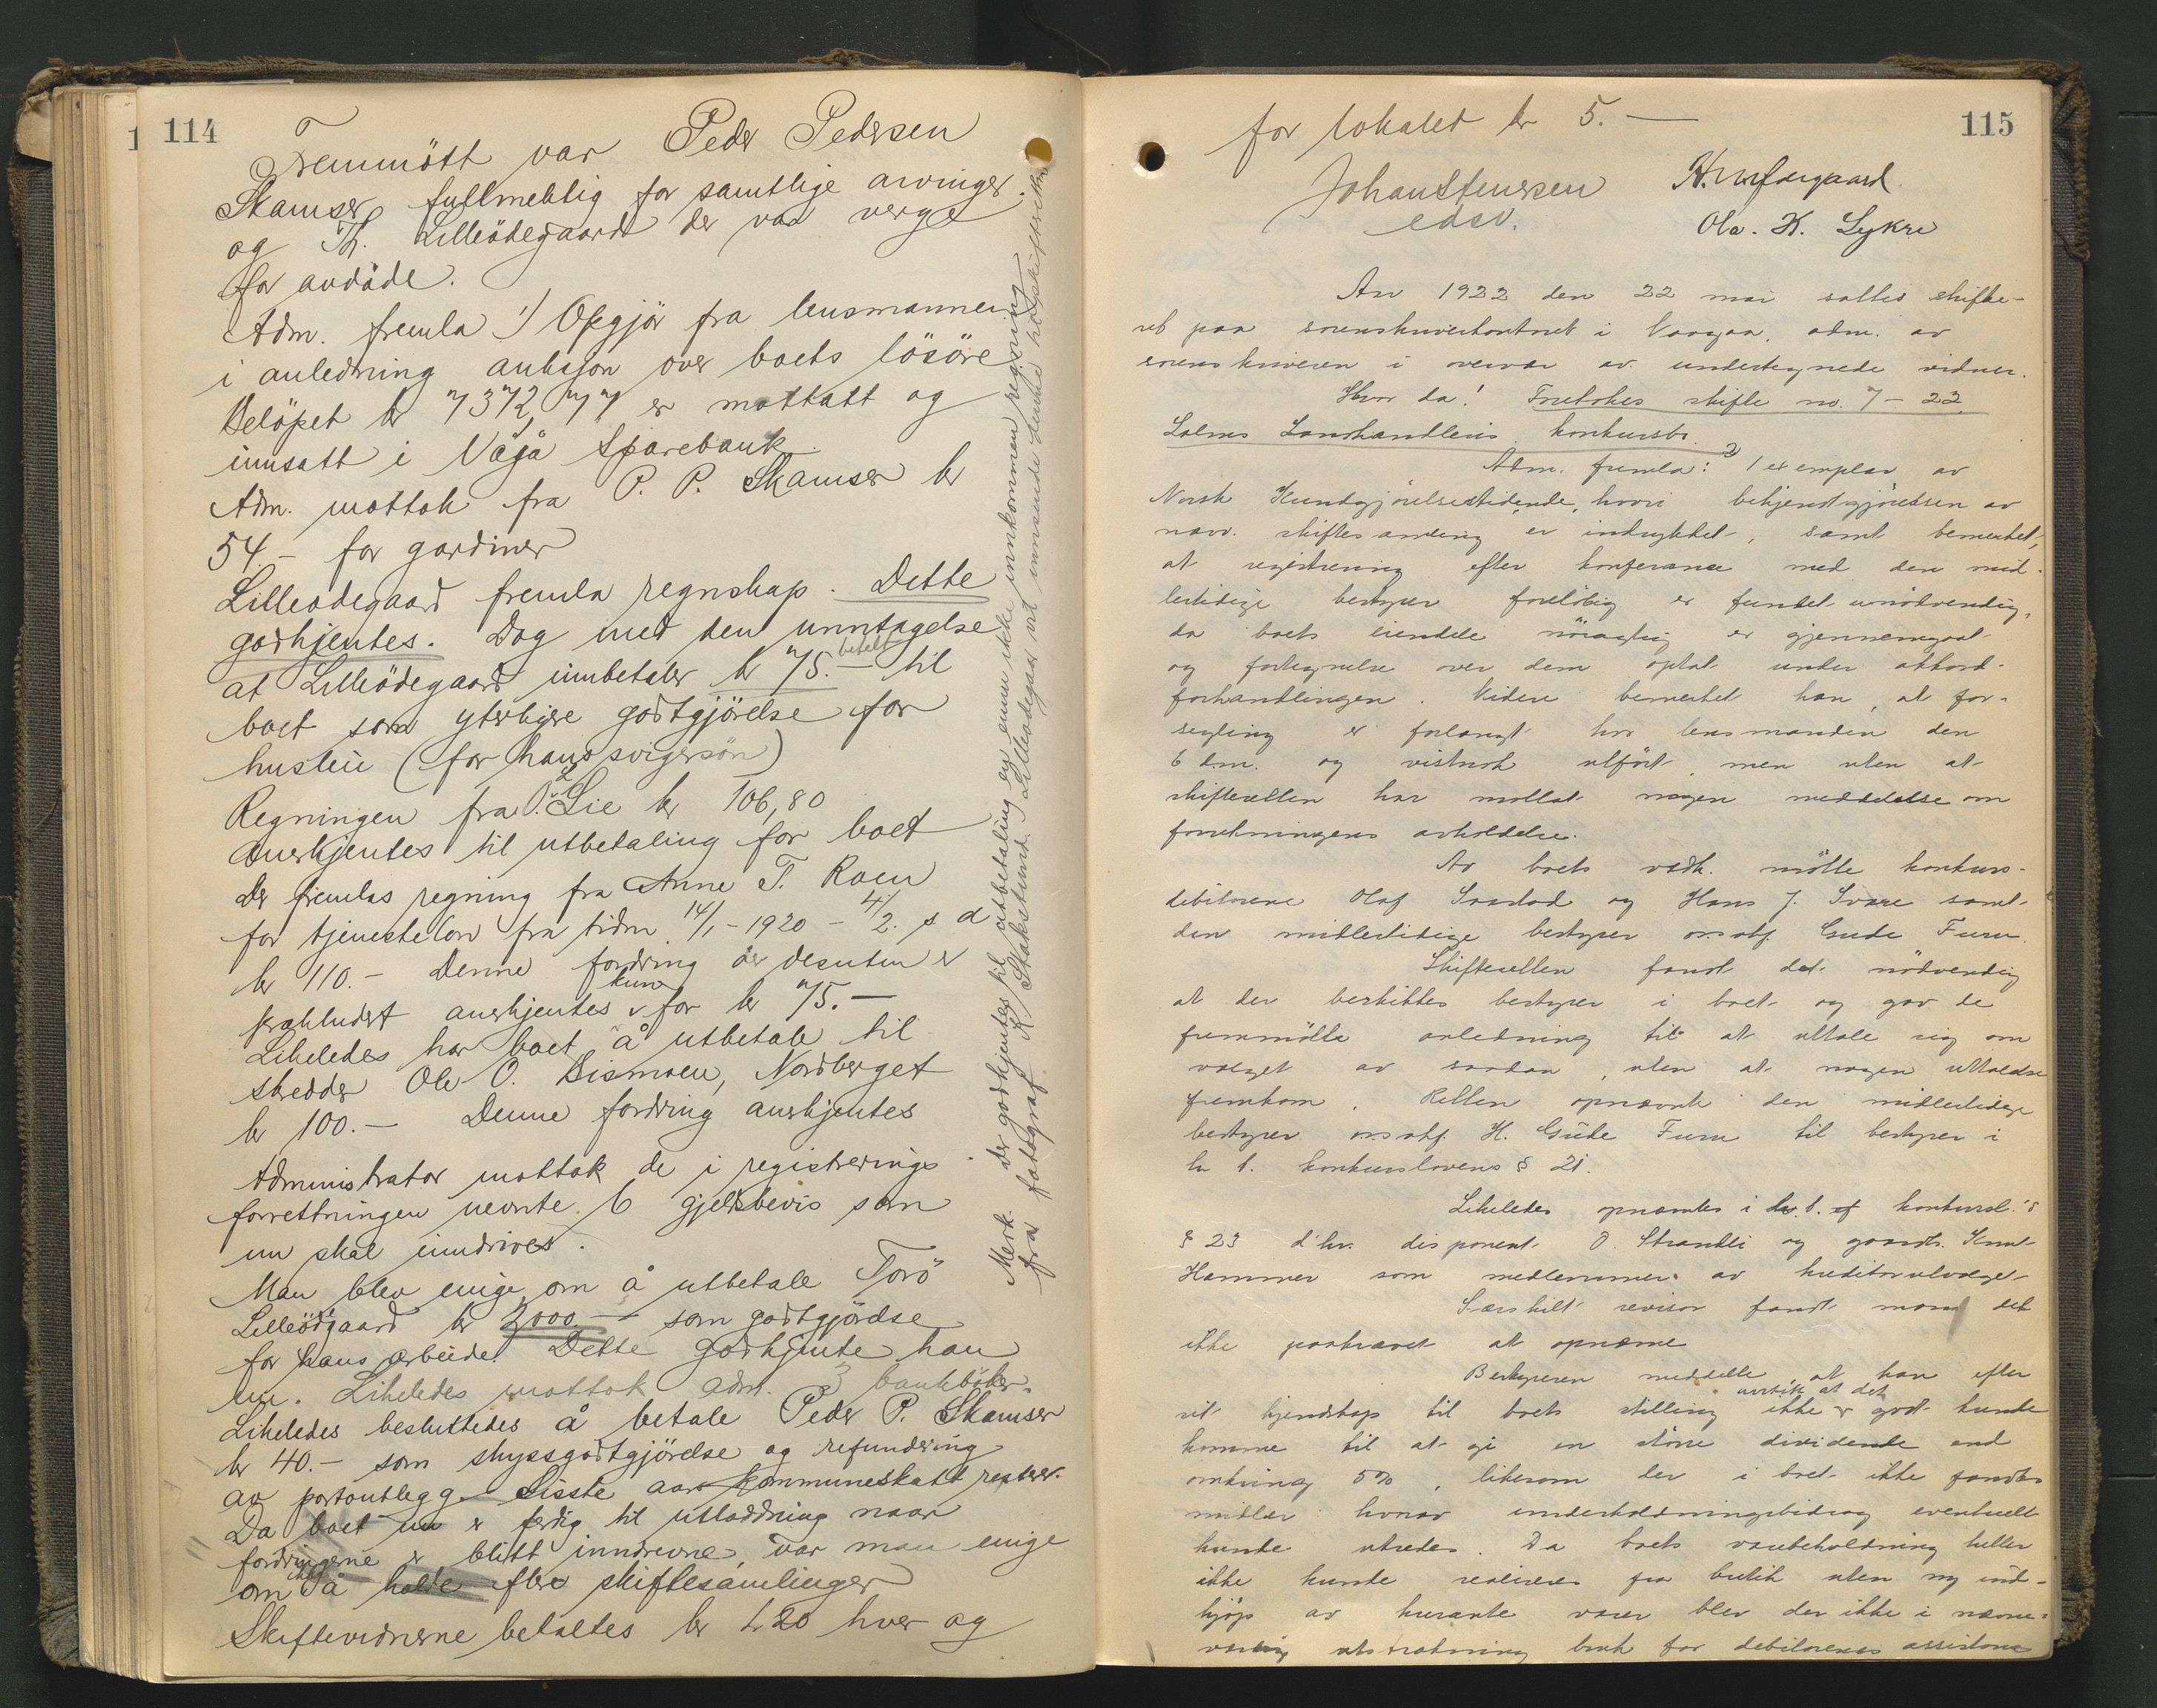 114
Fremmött var Peder Pedersen
Skamser fullmektig for samtlige arvinger.
og Th. Lilleödegaard der var verge
for avdöde.
Adm. fremla 1) Opgjör fra lensmannen
i anledning auksjon over boets lösöre
Belöpet kr 7372,77 er mottatt og
innsatt i Vågå Sparebank.
Adm. mottok fra P. P. Skamser kr
54.- for gardiner
Lilleödegaard fremla regnskap. Dette
godkjentes. Dog med den unntagelse
at Lilleödegaard innbetaler kr 75.- betalt til
boet som yterligere godtgjörelse for
husleie (for hans svigersön)
Regningen fra Lie kr 106,80
anerkjentes til utbetaling for boet
Der fremlas regning fra Anne T. Roen
for tjenestelön fra tidm 14/1-1920 - 4/2. s d
kr 110.- Denne fordring der desuten er
prekludert anerkjentes kun for kr 75.-
Likeledes har boet å utbetale til
skredder Ole O. Bismoen, Nordberget
kr 100.- Denne fordring anerkjentes
Administrator mottok de i registrerings
forrettningen nevnte 6 gjeldsbevis som
nu skal inndrives.
Man blev enige om å utbetale Torö
Lilleödegaard kr 2000.- som godtgjörelse
for hans arbeide. Dette godkjente han
nu. Likeledes mottok adm. 3 bankböker.
Likeledes besluttedes å betale Peder P. Skamser
kr 40.- som skyssgodtgjörelse og refundering
av portoutlegg. Sisste aars kommuneskatt
Da boet nu er ferdig til utloddning naar
fordringene er blitt inndrevne, var man enige
om ikke å holde flere skiftesamlinger
Skiftevidnerne betaltes kr 1.20 hver og
Merk. Der godkjentes til utbetaling en ennu ikke innkommen regning
fra fotograf K. Stakstund. Lilleödegaar vil innsende denne til skifteretten
115
for lokalet kr 5.-
Johan Stenersen
edsv.
Ola. K. Lykre
An 1922 den 22 mai sattes skifte-
ret paa sorenskriverkontoret i Vaagaa, adm. av
sorenskriveren i overvær av undertegnede vidner.
Hvor da! Foretokes skifte no. 7-22
Solms Landhandleris konkursbo.
Adm. fremla: 1 exemplar av
Norsk Kundgjörelsestidende, hvori bekjendtgjörelsen av
nærv. skiftesamling er indrykket, samt bemerket,
at registrering efter konferance med den mid-
lertidige bestyrer forelöbig er fundet unödvendig,
da boets eiendele nöiagtig er gjennemgaat
og fortegnelse over dem optat under akkord-
forhandlingen. Videre bemerket han, at for-
segling er forlangt hos lensmanden den
6 dm. og vistnok utfört, men uten at
skifteretten har mottat nogen meddelelse om
forretningens avholdelse.
Av boets vedk. mötte konkurs-
debitorene Olaf Saastad og Hans J. Svare samt
den midlertidige bestyrer o.r.satf. Gude Furu.
Skifteretten fandt det nödvendig
at der beskikkes bestyrer i boet og gav de
fremmötte anledning til at uttale sig om
valget av saadan, uten at nogen uttalelse
fremkom. Retten opnævnte den midlertidige
bestyrer o.r.satf. H. Gude Furu til bestyrer i
h. t. konkurslovens § 21.
Likeledes opnævntes i h. t. konkursl.'s
§ 23 d'hr. disponent O. Strandli og gaardb. Knut
Hammer som medlemmer av kreditorutvalget
Særskilt revisor fandt man det
ikke paakrævet at opnævne
Bestyreren meddelte at han efter
sit kjendskap til boets stilling ikke at det godt kunde
komme til at gi en större dividende end
omkring 5%, likesom der i boet ikke fandtes
midler hvorav underholdningsbidrag eventuelt
kunde utredes. Da boets varebeholdning heller
ikke kunde realiseres fra butik uten ny ind-
kjöp av kurante varer blev der ikke i nævne-
værdig utstrækning bruk for debitorenes assistance